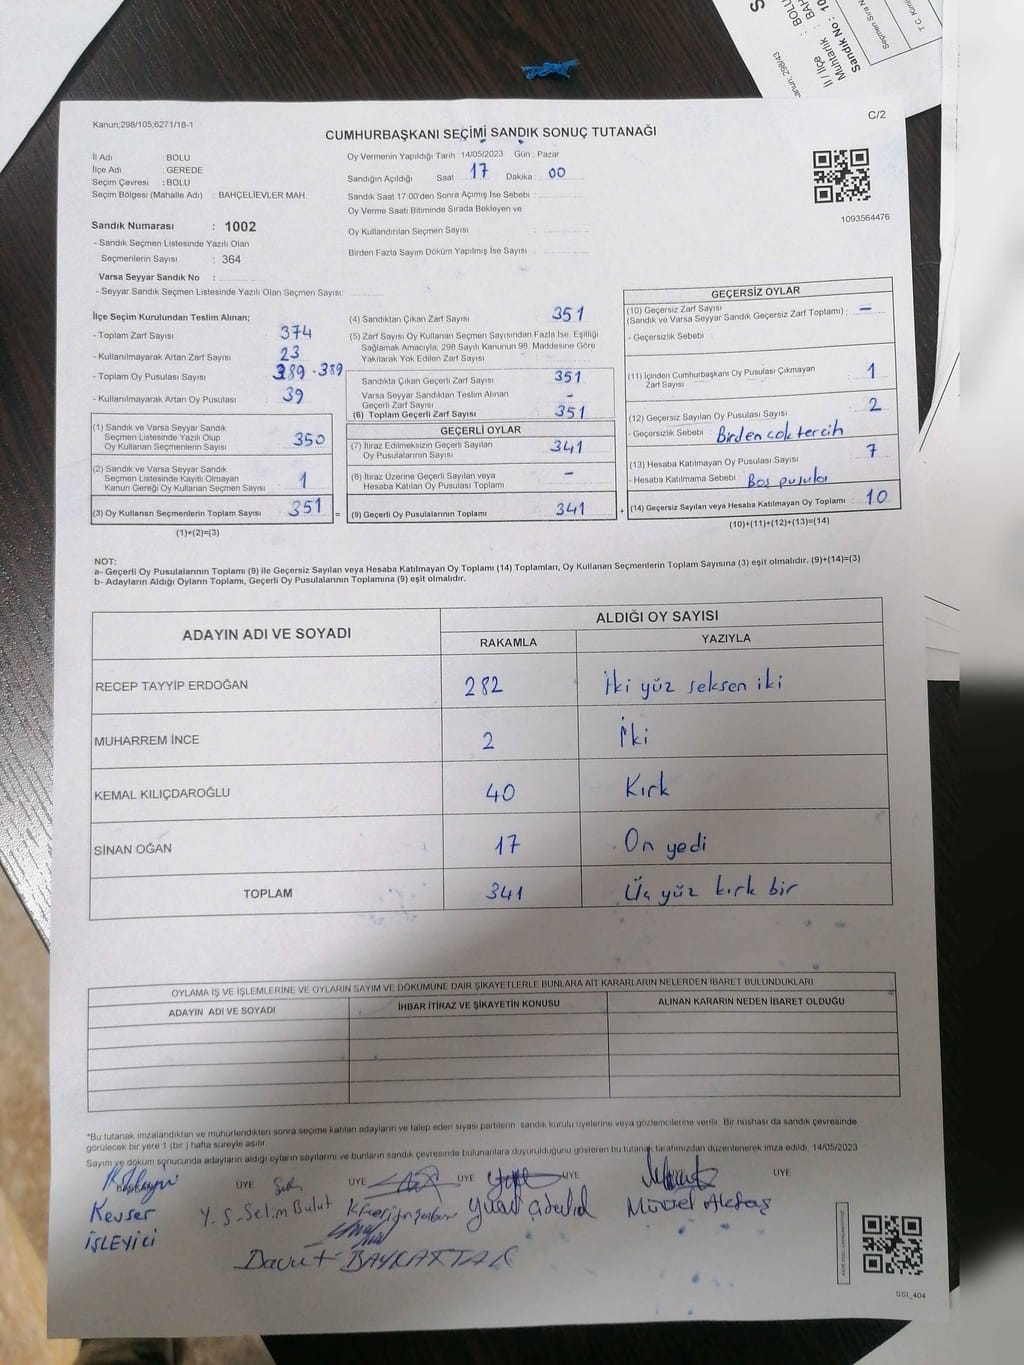 Kanun;298/105;6271/18-1
C/2
CUMHURBAŞKANI SEÇİMİ SANDIK SONUÇ TUTANAĞI
İl Adı : BOLU
İlçe Adı : GEREDE
Seçim Çevresi : BOLU
Seçim Bölgesi (Mahalle Adı) : BAHÇELİEVLER MAH.
Oy Vermenin Yapıldığı Tarih : 14/05/2023 Gün : Pazar
Sandığın Açıldığı Saat 17 Dakika : 00
Sandık Saat 17:00'den Sonra Açımış İse Sebebi :
Oy Verme Saati Bitiminde Sırada Bekleyen ve
Oy Kullandırılan Seçmen Sayısı :
Birden Fazla Sayım Döküm Yapılmış İse Sayısı :
1093564476
Sandık Numarası : 1002
- Sandık Seçmen Listesinde Yazılı Olan
Seçmenlerin Sayısı : 364
Varsa Seyyar Sandık No :
- Seyyar Sandık Seçmen Listesinde Yazılı Olan Seçmen Sayısı:
İlçe Seçim Kurulundan Teslim Alınan;
- Toplam Zarf Sayısı : 374
- Kullanılmayarak Artan Zarf Sayısı : 23
- Toplam Oy Pusulası Sayısı : 389 - 389
- Kullanılmayarak Artan Oy Pusulası : 39
(1) Sandık ve Varsa Seyyar Sandık
Seçmen Listesinde Yazılı Olup
Oy Kullanan Seçmenlerin Sayısı : 350
(2) Sandık ve Varsa Seyyar Sandık
Seçmen Listesinde Kayıtlı Olmayan
Kanun Gereği Oy Kullanan Seçmen Sayısı : 1
(3) Oy Kullanan Seçmenlerin Toplam Sayısı : 351
(1)+(2)=(3)
(4) Sandıktan Çıkan Zarf Sayısı : 351
(5) Zarf Sayısı Oy Kullanan Seçmen Sayısından Fazla İse, Eşitliği
Sağlamak Amacıyla; 298 Sayılı Kanunun 98. Maddesine Göre
Yakılarak Yok Edilen Zarf Sayısı :
Sandıkta Çıkan Geçerli Zarf Sayısı : 351
Varsa Seyyar Sandıktan Teslim Alınan
Geçerli Zarf Sayısı : -
(6) Toplam Geçerli Zarf Sayısı : 351
GEÇERLİ OYLAR
(7) İtiraz Edilmeksizin Geçerli Sayılan
Oy Pusulalarının Sayısı : 341
(8) İtiraz Üzerine Geçerli Sayılan veya
Hesaba Katılan Oy Pusulası Toplamı : -
(9) Geçerli Oy Pusulalarının Toplamı : 341
GEÇERSİZ OYLAR
(10) Geçersiz Zarf Sayısı
(Sandık ve Varsa Seyyar Sandık Geçersiz Zarf Toplamı) : -
- Geçersizlik Sebebi :
(11) İçinden Cumhurbaşkanı Oy Pusulası Çıkmayan
Zarf Sayısı : 1
(12) Geçersiz Sayılan Oy Pusulası Sayısı : 2
- Geçersizlik Sebebi : Birden cok tercih
(13) Hesaba Katılmayan Oy Pusulası Sayısı : 7
- Hesaba Katılmama Sebebi : Boş pusula
(14) Geçersiz Sayılan veya Hesaba Katılmayan Oy Toplamı : 10
(10)+(11)+(12)+(13)=(14)
NOT:
a- Geçerli Oy Pusulalarının Toplamı (9) ile Geçersiz Sayılan veya Hesaba Katılmayan Oy Toplamı (14) Toplamları, Oy Kullanan Seçmenlerin Toplam Sayısına (3) eşit olmalıdır. (9)+(14)=(3)
b- Adayların Aldığı Oyların Toplamı, Geçerli Oy Pusulalarının Toplamına (9) eşit olmalıdır.
ADAYIN ADI VE SOYADI
ALDIĞI OY SAYISI
RAKAMLA YAZIYLA
RECEP TAYYİP ERDOĞAN 282 İki yüz seksen iki
MUHARREM İNCE 2 İki
KEMAL KILIÇDAROĞLU 40 Kırk
SİNAN OĞAN 17 On yedi
TOPLAM 341 Üç yüz kırk bir
OYLAMA İŞ VE İŞLEMLERİNE VE OYLARIN SAYIM VE DÖKÜMÜNE DAİR ŞİKAYETLERLE BUNLARA AİT KARARLARIN NELERDEN İBARET BULUNDUKLARI
ADAYIN ADI VE SOYADI İHBAR İTİRAZ VE ŞİKAYETİN KONUSU ALINAN KARARIN NEDEN İBARET OLDUĞU
*Bu tutanak imzalandıktan ve mühürlendikten sonra seçime katılan adayların ve talep eden siyasi partilerin sandık kurulu üyelerine veya gözlemcilerine verilir. Bir nüshası da sandık çevresinde
görülecek bir yere 1 (bir) hafta süreyle asılır.
Sayım ve döküm sonucunda adayların aldığı oyların sayılarını ve bunların sandık çevresinde bulunanlara duyurulduğunu gösteren bu tutanak tarafımızdan düzenlenerek imza edildi. 14/05/2023
BAŞKAN ÜYE ÜYE ÜYE ÜYE ÜYE
Kevser Y. S. Selim Bulut Mürsel Aktaş
İŞLEYİCİ
Davut BAYRAKTAR
SSI_404
İl / İlçe : BOLU
Muhtarlık : BAH
Sandık No : 10
Seçmen Sıra N
T.C. Kimli